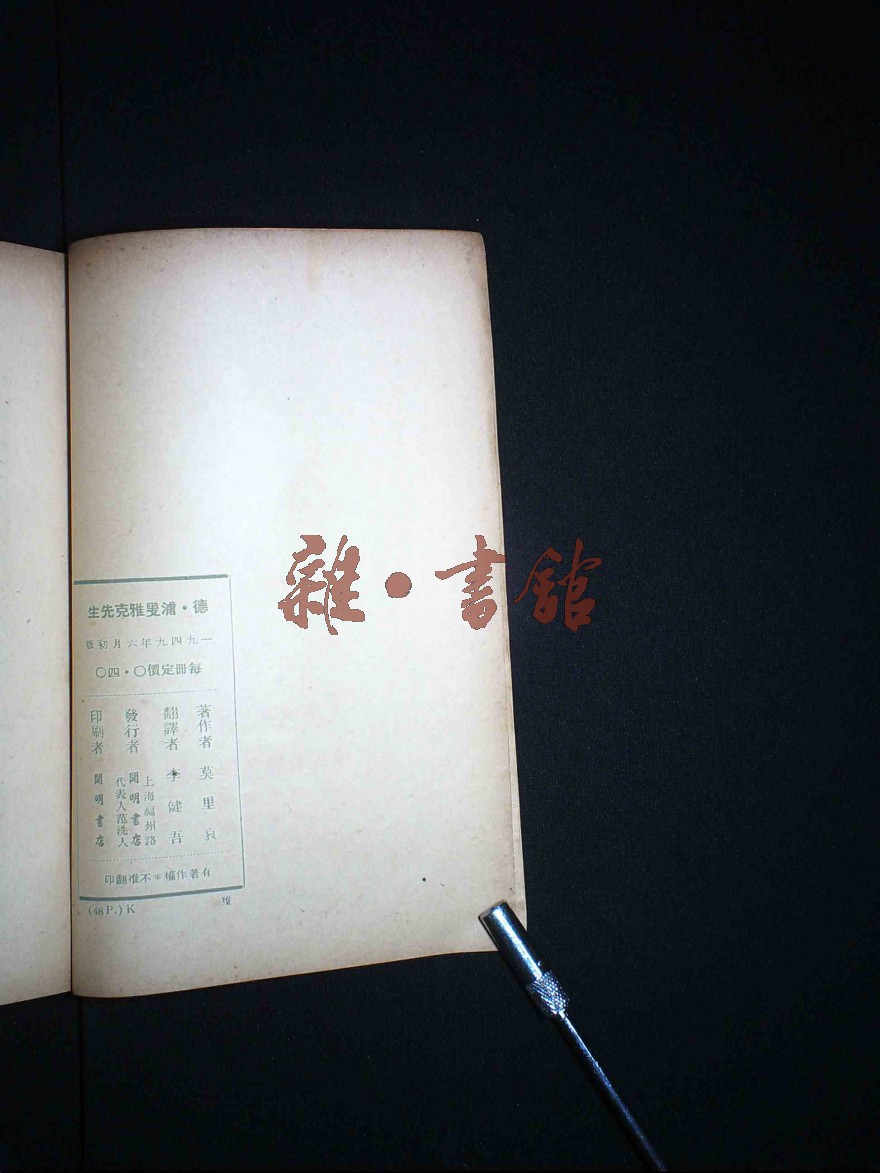 德·浦叟雅克先生
一九四九年六月初版
每冊定價〇·四〇
著作者 莫里哀
翻譯者 李健吾
發行者 上海福州路 開明書店 代表人范洗人
印刷者 開明書店
有著作權＊不准翻印
(48 P.) K
雜·書館